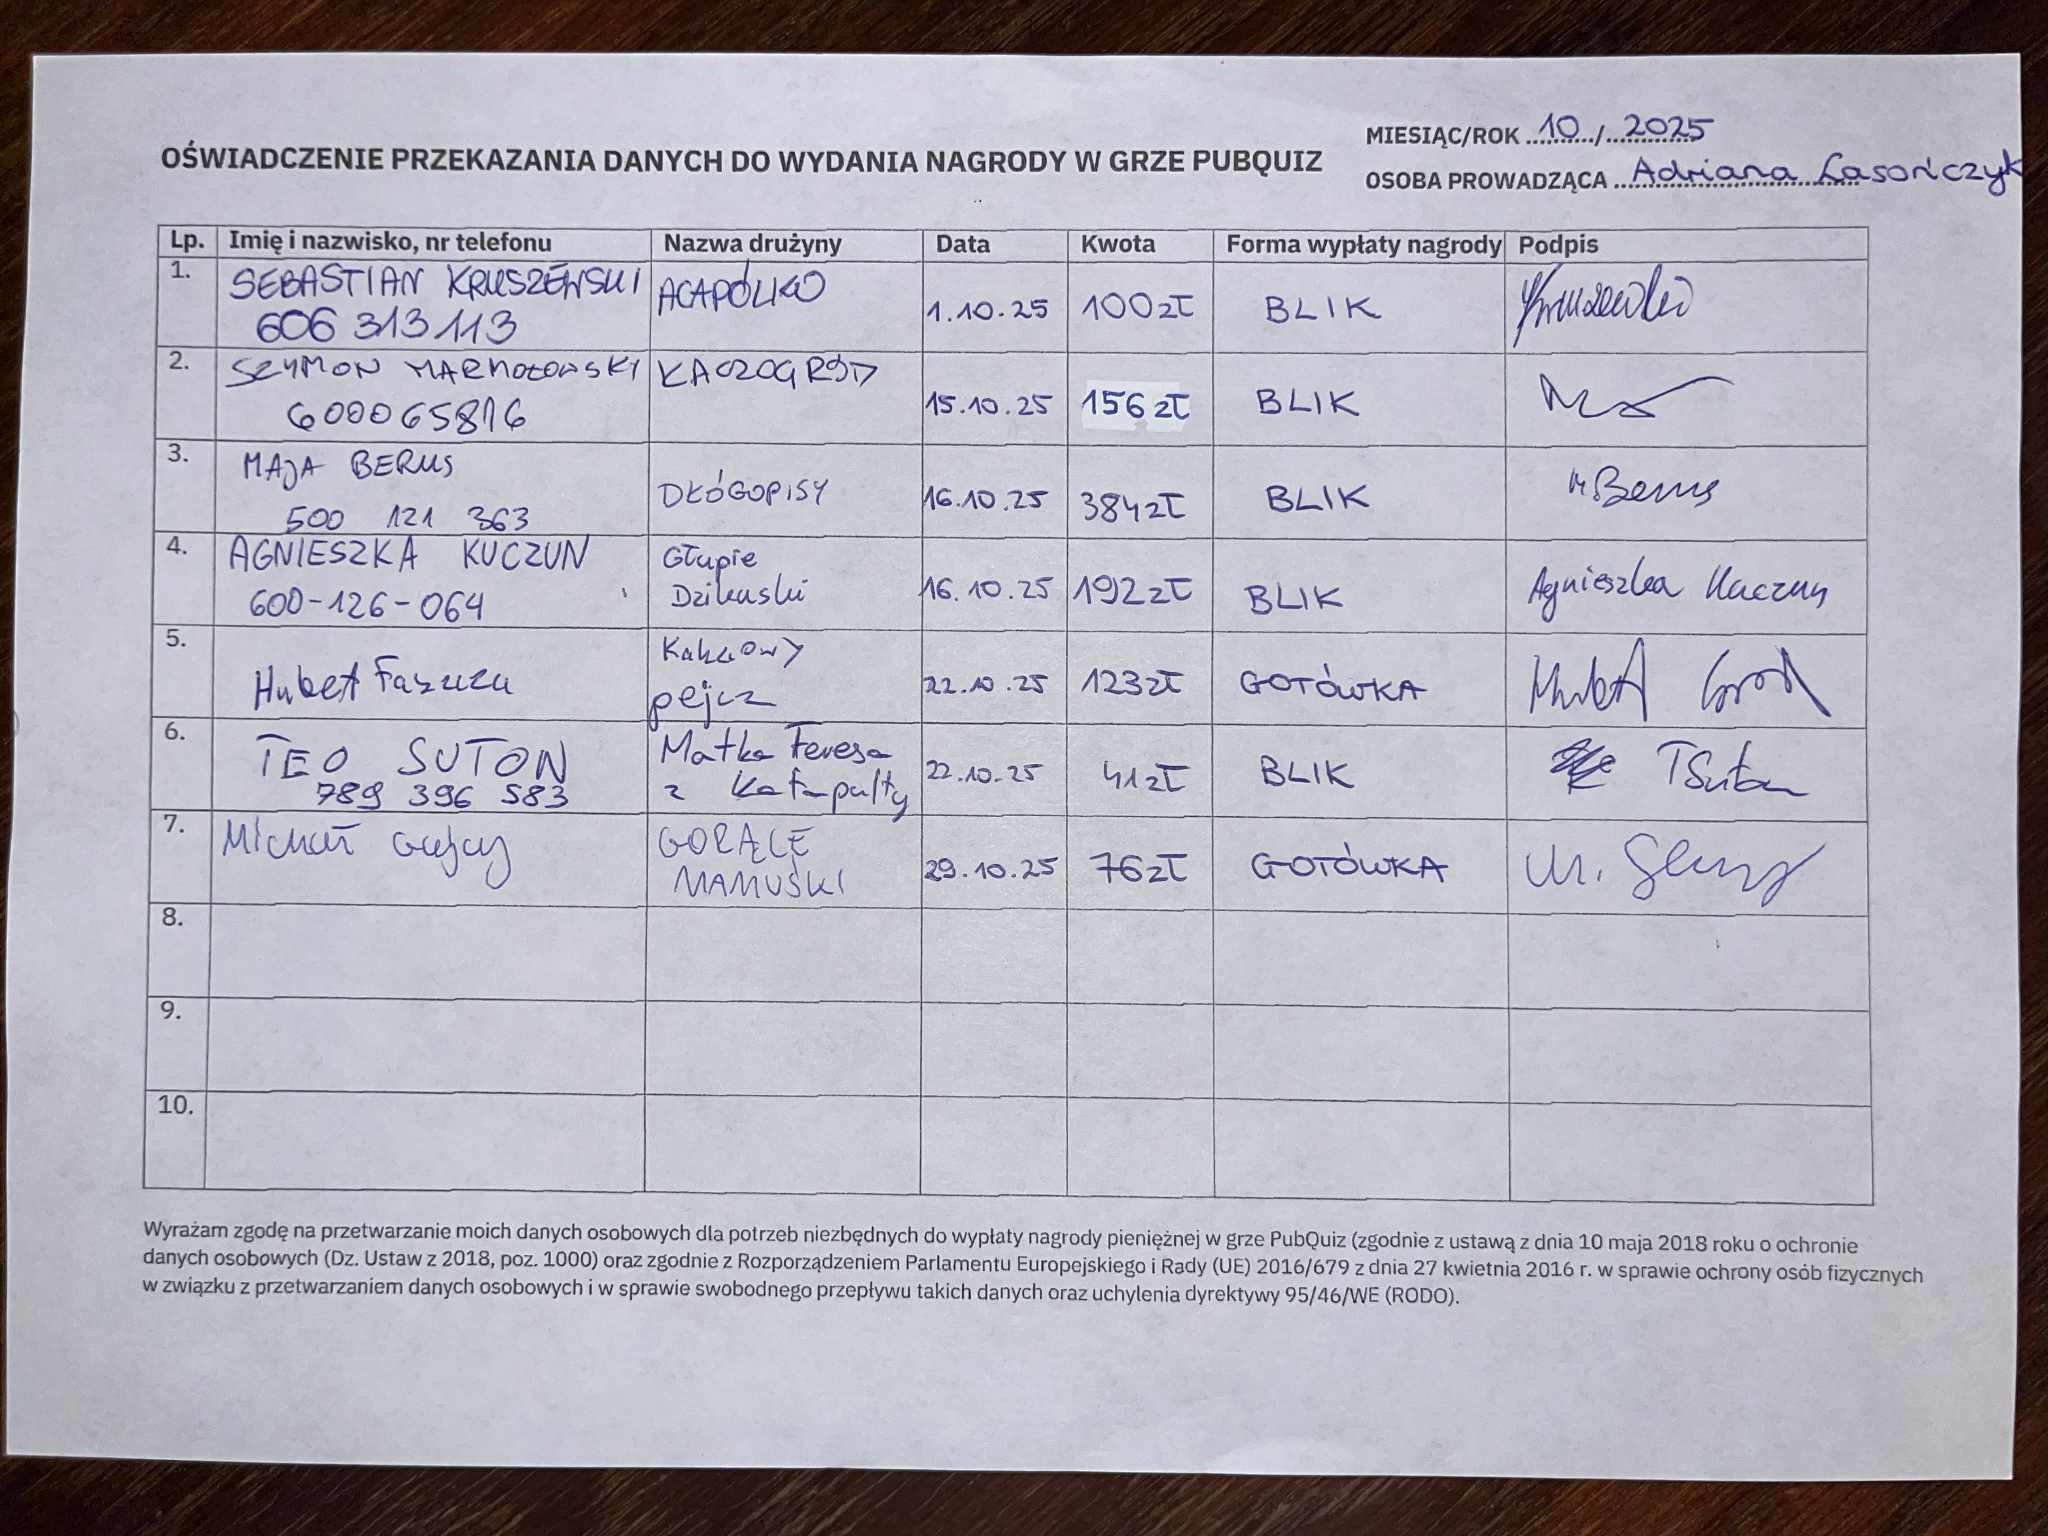 MIESIĄC/ROK 10 / 2025
OŚWIADCZENIE PRZEKAZANIA DANYCH DO WYDANIA NAGRODY W GRZE PUBQUIZ
OSOBA PROWADZĄCA Adriana Lasończyk
Lp. Imię i nazwisko, nr telefonu Nazwa drużyny Data Kwota Forma wypłaty nagrody Podpis
1. SEBASTIAN KRUSZEWSKI ACAPÓLKO 1.10.25 100zł BLIK Kruszewski
606 313 113
2. SZYMON MARMOŁOWSKI KACZOGRÓD 15.10.25 156zł BLIK
600065816
3. MAJA BERUS DŁÓGOPISY 16.10.25 384zł BLIK M Berus
500 121 363
4. AGNIESZKA KUCZUN Głupie 16.10.25 192zł BLIK Agnieszka Kuczun
600-126-064 Dzikuski
5. Hubert Kakaowy 22.10.25 123zł GOTÓWKA Hubert
pejcz
6. TEO SUTON Matka Teresa 22.10.25 41zł BLIK TSuton
789 396 583 z Katapulty
7. Michał GORĄCE 29.10.25 76zł GOTÓWKA M.
MAMUŚKI
8.
9.
10.
Wyrażam zgodę na przetwarzanie moich danych osobowych dla potrzeb niezbędnych do wypłaty nagrody pieniężnej w grze PubQuiz (zgodnie z ustawą z dnia 10 maja 2018 roku o ochronie
danych osobowych (Dz. Ustaw z 2018, poz. 1000) oraz zgodnie z Rozporządzeniem Parlamentu Europejskiego i Rady (UE) 2016/679 z dnia 27 kwietnia 2016 r. w sprawie ochrony osób fizycznych
w związku z przetwarzaniem danych osobowych i w sprawie swobodnego przepływu takich danych oraz uchylenia dyrektywy 95/46/WE (RODO).